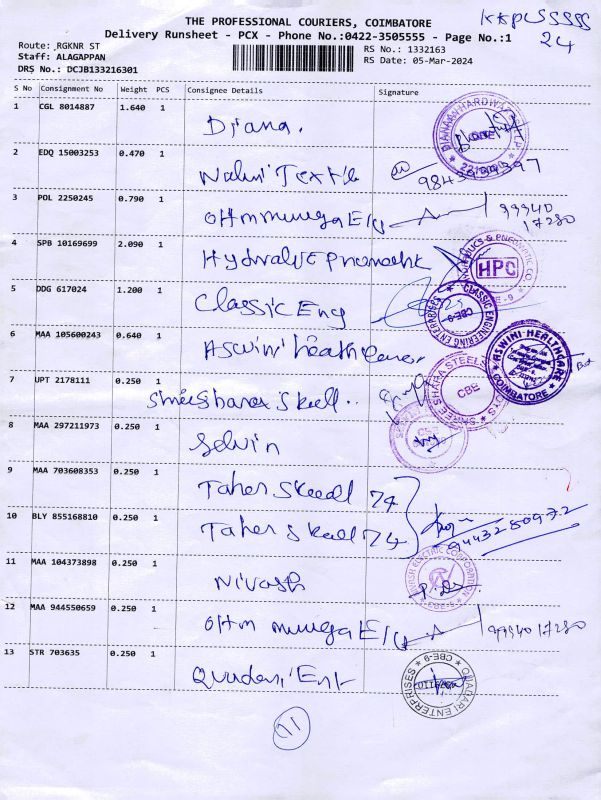 THE PROFESSIONAL COURIERS, COIMBATORE
Delivery Runsheet - PCX - Phone No.:0422-3505555 - Page No.:1
24
Route: RGKNR ST
RS No.: 1332163
Staff: ALAGAPPAN
RS Date: 05-Mar-2024
DRS No.: DCJB133216301
S No Consignment No Weight PCS Consignee Details Signature
1 CGL 8014887 1.640 1 Diana.
2 EDQ 15003253 0.470 1 Nalini Textile
3 POL 2250245 0.790 1 Ohm muruga Eng 99940
17280
4 SPB 10169699 2.090 1 Hydralic HPC
5 DDG 617024 1.200 1 Classic Eng CLASSIC ENGINEERING ENTERPRISES CBE-9
6 MAA 105600243 0.640 1 Aswini health care. ASWINI HEALTHCARE COIMBATORE
7 UPT 2178111 0.250 1 CBE
8 MAA 297211973 0.250 1 Selvin
9 MAA 703608353 0.250 1 Taher 74
10 BLY 855168810 0.250 1 Taher 74 9443280972
11 MAA 104373898 0.250 1 Nivash ELECTRIC CORPORATION CBE-9
12 MAA 944550659 0.250 1 Ohm muruga Eng 9994017280
13 STR 703635 0.250 1 ENTERPRISES CBE-9
11